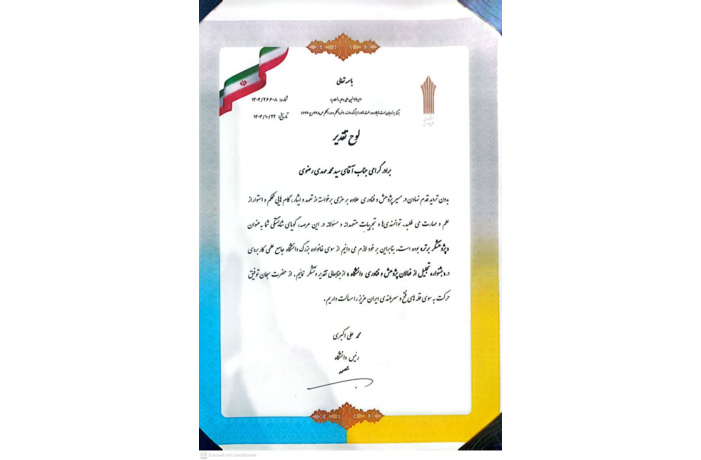 باسمه تعالی
شماره: ۱۴۰۳/۲۶۶۰۸
تاریخ: ۱۴۰۳/۱۰/۲۳
لوح تقدیر
برادر گرامی جناب آقای سید محمد مهدی رضوی
بدون تردید قدم نهادن در مسیر پژوهش و فناوری علاوه بر عزمی برخواسته از تعهد و ایثار، گام هایی محکم و استوار از
علم و مهارت می طلبد، توانمندی‌ها و تجربیات متعهدانه و مسئولانه در این عرصه، گویای شایستگی شما به عنوان
«پژوهشگر برتر» بوده است، بنابراین بر خود لازم می دانیم از سوی خانواده بزرگ دانشگاه جامع علمی کاربردی
در «جشنواره تجلیل از فعالان پژوهش و فناوری دانشگاه» از جنابعالی تقدیر و تشکر نمایم. از حضرت سبحان توفیق
حرکت به سوی قله های فتح و سربلندی ایران عزیز را مسألت داریم.
محمد علی اکبری
رئیس دانشگاه
Scanned with CamScanner